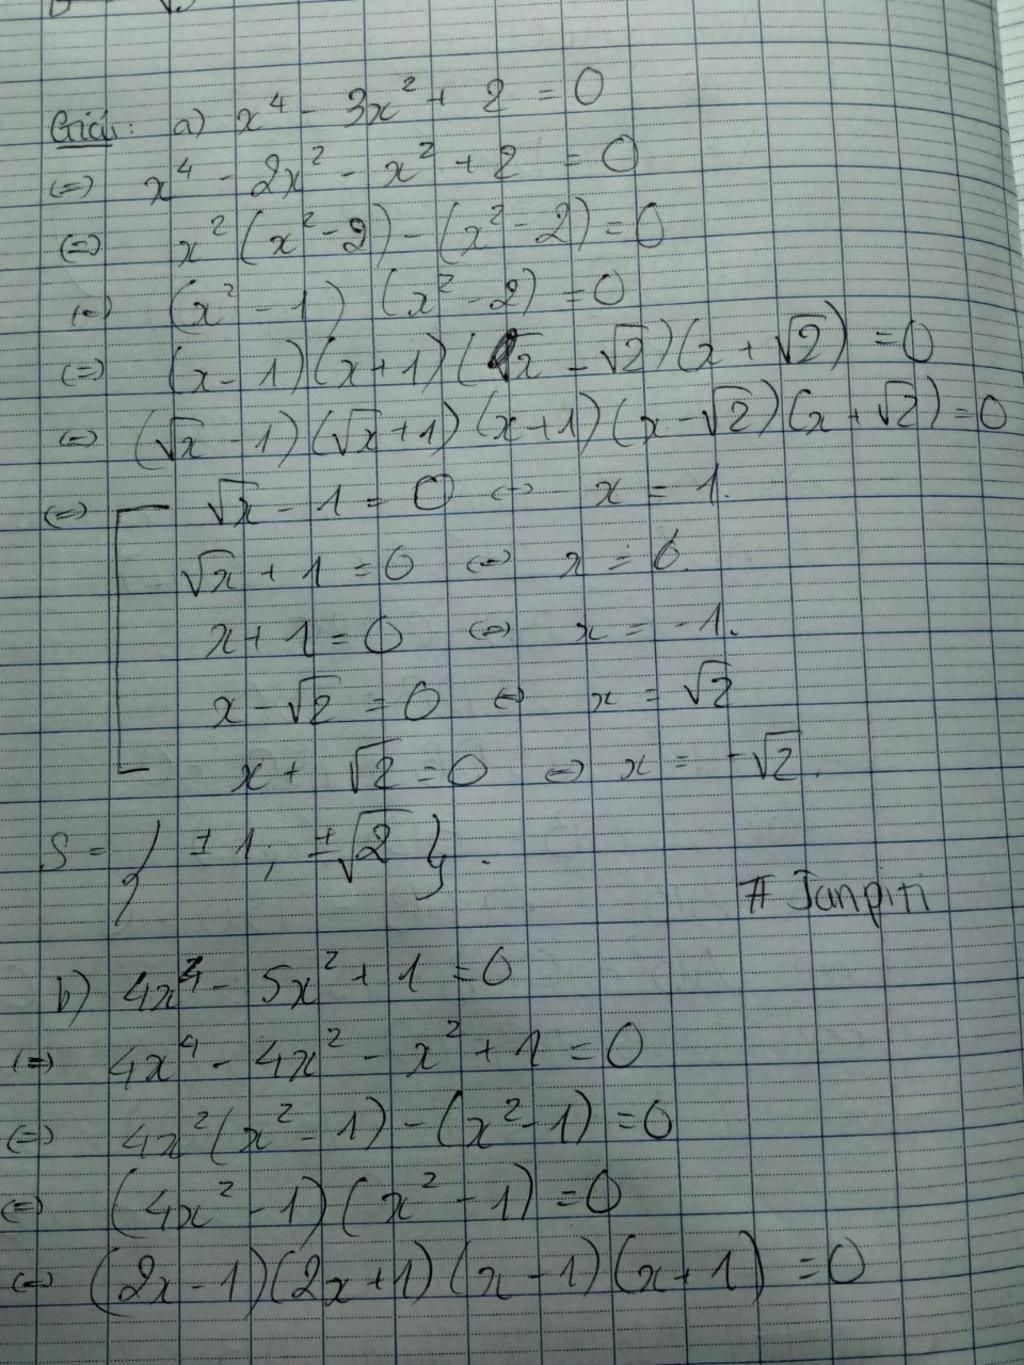 Giải: a) x⁴ - 3x² + 2 = 0
(=) x⁴ - 2x² - x² + 2 = 0
(=) x²(x² - 2) - (x² - 2) = 0
(=) (x² - 1) (x² - 2) = 0
(=) (x - 1)(x + 1)(x - √2)(x + √2) = 0
(=) (√x - 1)(√x + 1)(x + 1)(x - √2)(x + √2) = 0
(=) [ √x - 1 = 0 (=) x = 1.
√x + 1 = 0 (=) x = 0.
x + 1 = 0 (=) x = -1.
x - √2 = 0 (=) x = √2
x + √2 = 0 (=) x = -√2.
S = { ± 1; ±√2 }.
# Janpiti
b) 4x⁴ - 5x² + 1 = 0
(=) 4x⁴ - 4x² - x² + 1 = 0
(=) 4x²(x² - 1) - (x² - 1) = 0
(=) (4x² - 1)(x² - 1) = 0
(=) (2x - 1)(2x + 1)(x - 1)(x + 1) = 0